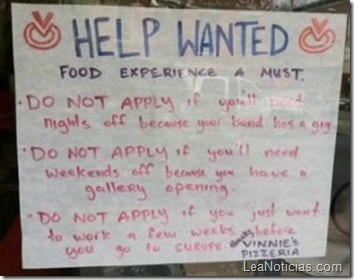 HELP WANTED
FOOD EXPERIENCE A MUST.
• DO NOT APPLY if you'll need
nights off because your band has a gig.
• DO NOT APPLY if you'll need
weekends off because you have a
gallery opening.
• DO NOT APPLY if you just want
to work a few weeks before
you go to EUROPE.
VINNIE'S
PIZZERIA
LeaNoticias.com